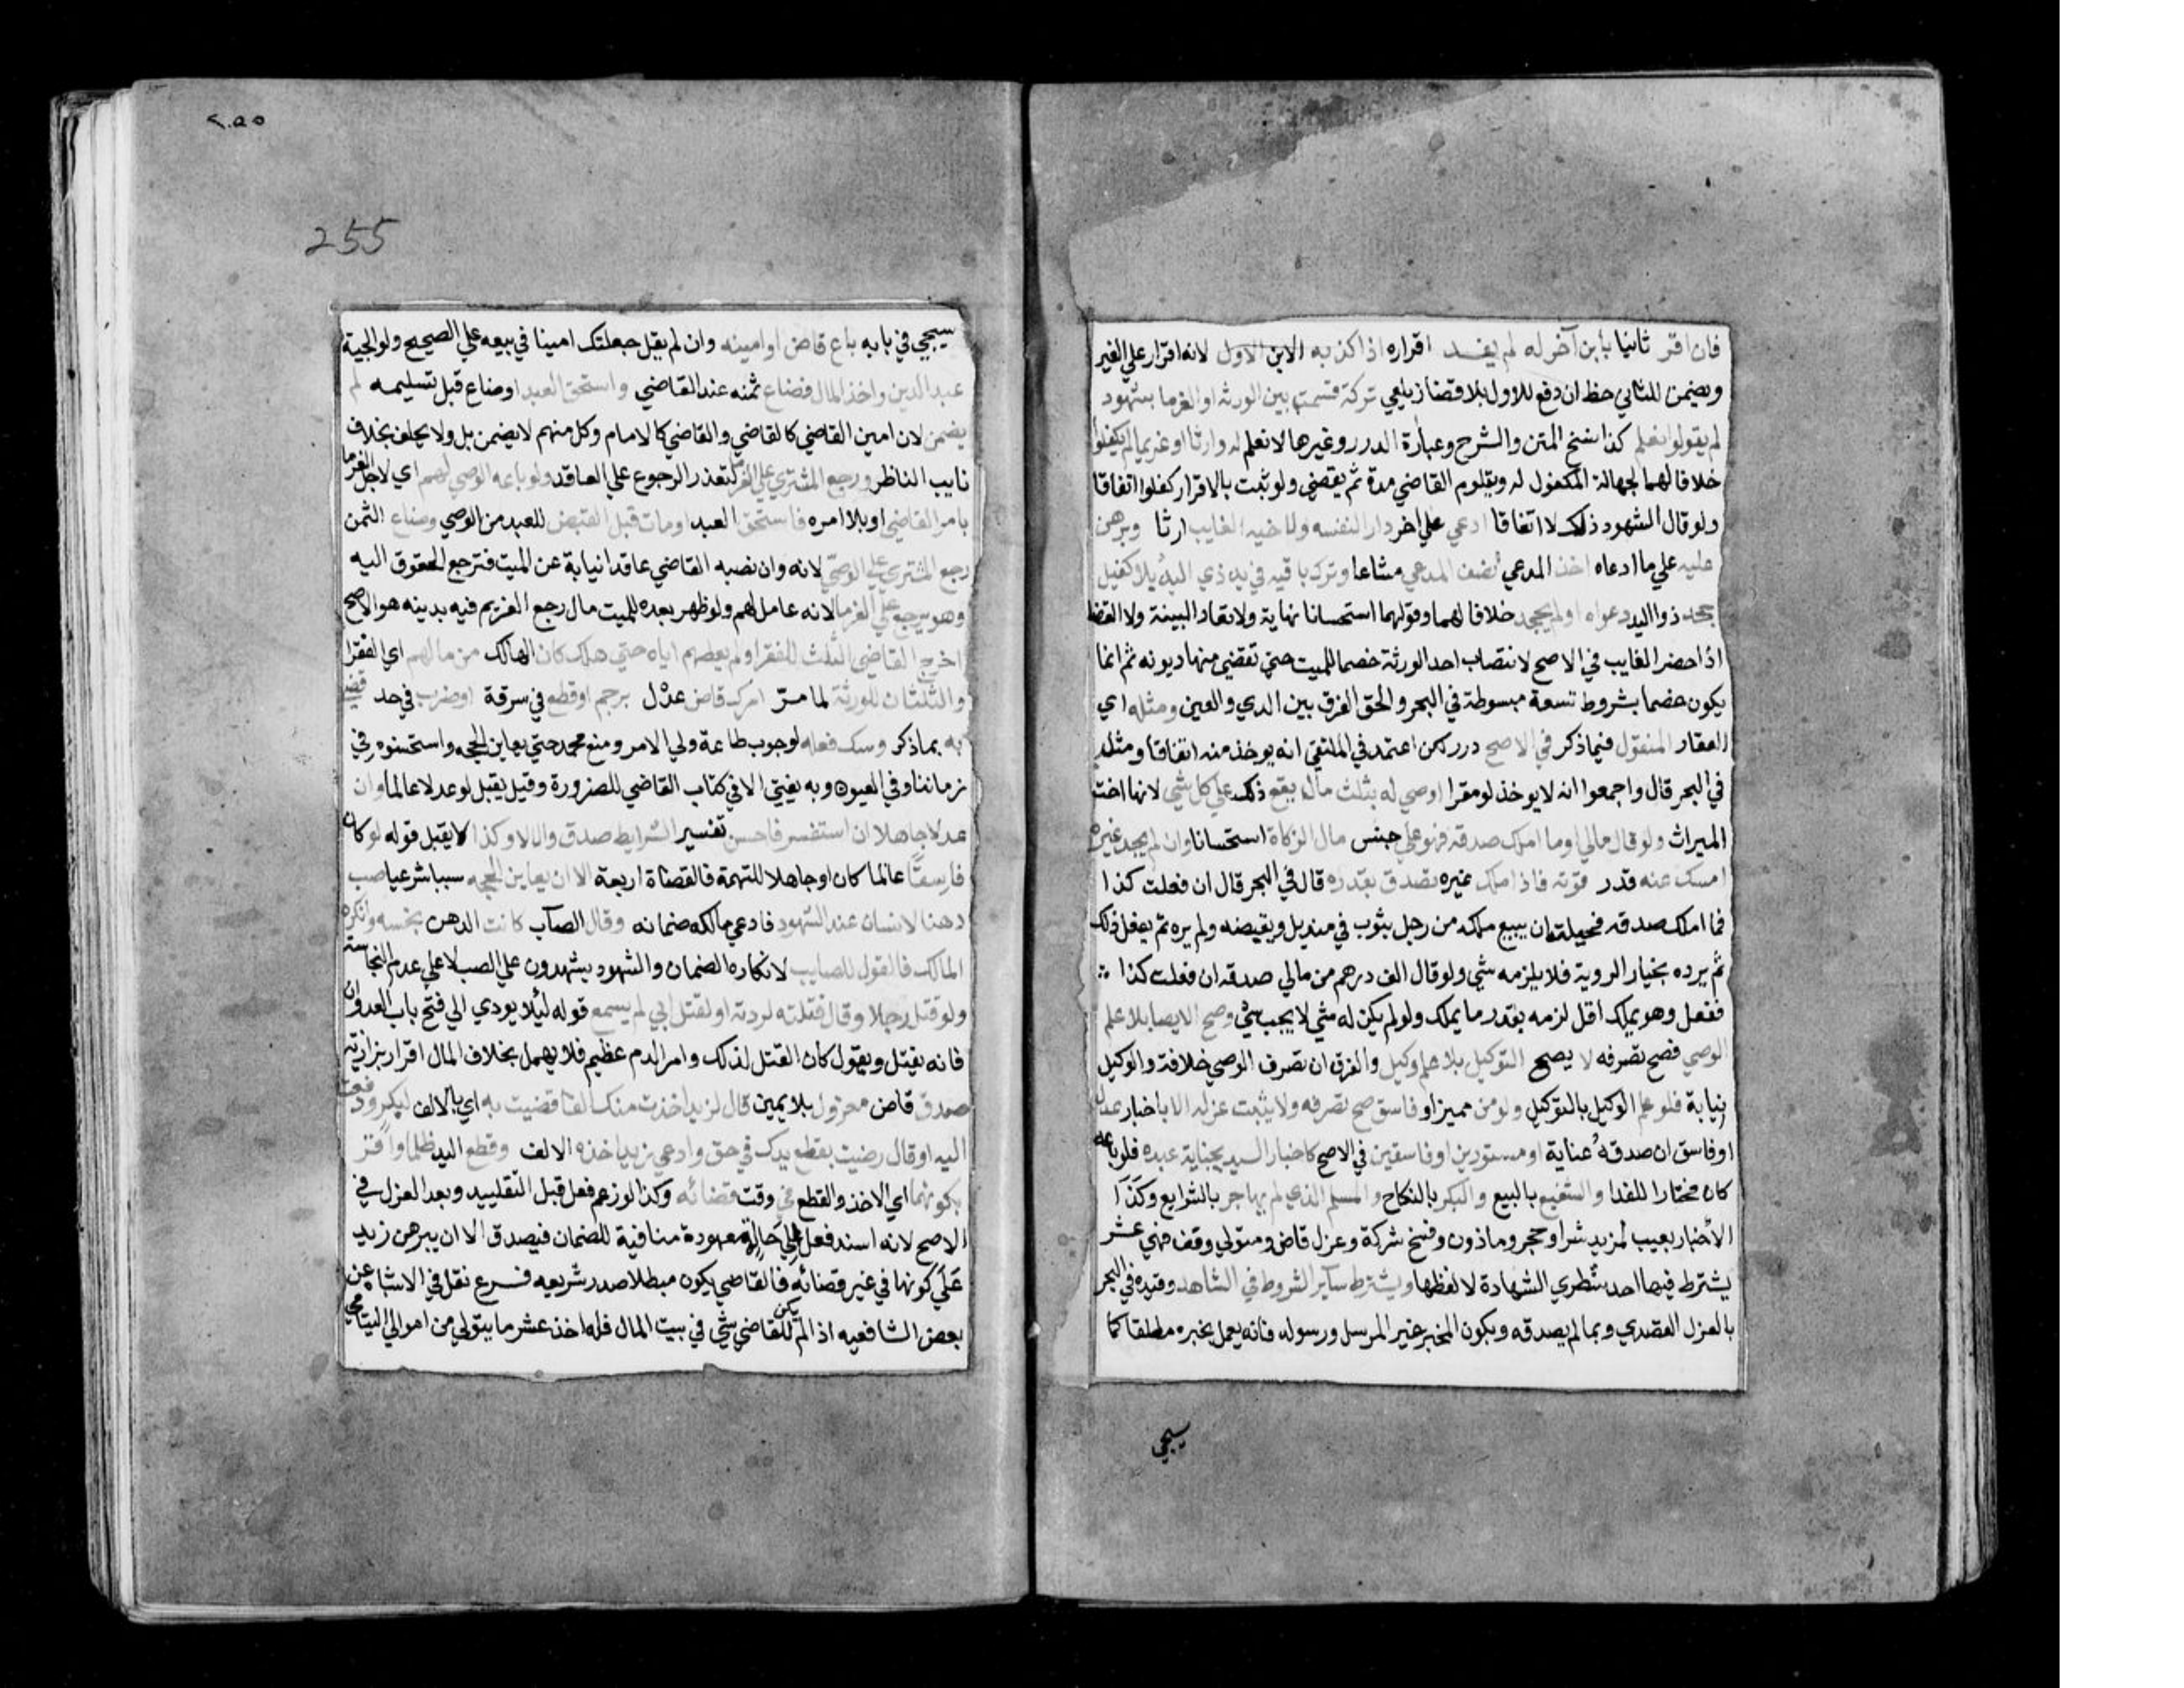 فان اقر ثانيا بابن آخر له لم يفد اقراره اذا كذبه الابن الاول لانه اقرار علي الغير
ويضمن للثاني حظ ان دفع للاول بلا قضا زيلعي تركة قسمت بين الورثه او الغرما بشهود
لم يقولوا نعلم كذا نسخ المتن والشرح وعبارة الدرر وغيرها لا نعلم له وارثا او غريما لم يكفلوا
خلافا لهما لجهالة المكفول له ويتلوم القاضي مدة ثم يقضي ولو ثبت بالاقرار كفلوا اتفاقا
ولو قال الشهود ذلك لا اتفاقا ادعي علي اخر دارا لنفسه ولاخيه الغايب ارثا وبرهن
عليه علي ما ادعاه اخذ المدعي نصف المدعي مشاعا وترك باقيه في يد ذي اليد بلا كفيل
جحد ذو اليد دعواه او لم يجحد خلافا لهما وقولهما استحسانا نهاية ولا تعاد البينة ولا القضا
اذا حضر الغايب في الاصح لانتصاب احد الورثة خصما للميت حتي تقضي منها ديونه ثم انما
يكون خصما بشروط تسعة مبسوطة في البحر والحق الفرق بين الدين والعين ومثله اي
العقار المنقول فيما ذكر في الاصح درر لكن اعتمد في الملتقي انه يوخذ منه اتفاقا ومثله
في البحر قال واجمعوا انه لا يوخذ لو مقرا اوصي له بثلث ماله يقع ذلك علي كل شي لانها اخت
الميراث ولو قال مالي او ما املك صدقه فهو علي جنس مال الزكاة استحسانا وان لم يجد غيره
امسك منه قدر قوته فاذا ملك غيره تصدق بقدره قال في البحر قال ان فعلت كذا
فما املك صدقه فحيلته ان يبيع ملكه من رجل بثوب في منديل ويقبضه ولم يره ثم يفعل ذلك
ثم يرده بخيار الروية فلا يلزمه شي ولو قال الف درهم من مالي صدقه ان فعلت كذا
ففعل وهو يملك اقل لزمه بقدر ما يملك ولو لم يكن له شي لا يجب شي وصح الايصا بلا علم
الوصي فصح تصرفه لا يصح التوكيل بلا علم وكيل والفرق ان تصرف الوصي خلافة والوكيل
نيابة فلو علم الوكيل بالتوكيل ولو من مميز او فاسق صح تصرفه ولا يثبت عزله الا باخبار عدل
او فاسق ان صدقه عناية او مستورين او فاسقين في الاصح كاخبار السيد بجناية عبده فلو باعه
كان مختارا للفدا والشفيع بالبيع والبكر بالنكاح والمسلم الذي لم يهاجر بالشرايع وكذا
الاخبار بعيب لمريد شرا وحجر وماذون وفسخ شركة وعزل قاض ومتولي وقف فهي عشر
يشترط فيها احد شطري الشهادة لا لفظها ويشترط ساير الشروط في الشاهد وقيده في البحر
بالعزل القصدي وبما لم يصدقه ويكون المخبر غير المرسل ورسوله فانه يعمل بخبره مطلقا كما
سيجي
٢٥٥
255
سيجي في بابه باع قاض او امينه وان لم يقل جعلتك امينا في بيعه علي الصحيح ولوالجية
عبد الدين واخذ المال فضاع ثمنه عند القاضي واستحق العبد او ضاع قبل تسليمه لم
يضمن لان امين القاضي كالقاضي والقاضي كالامام وكل منهم لا يضمن بل ولا يحلف بخلاف
نايب الناظر ورجع المشتري علي الغرما لتعذر الرجوع علي العاقد ولو باعه الوصي لهم اي لاجل الغرما
بامر القاضي او بلا امره فاستحق العبد او مات قبل القبض للعبد من الوصي وضاع الثمن
رجع المشتري علي الوصي لانه وان نصبه القاضي عاقد نيابة عن الميت فترجع الحقوق اليه
وهو يرجع علي الغرما لانه عامل لهم ولو ظهر بعده للميت مال رجع الغريم فيه بدينه هو الاصح
اخرج القاضي الثلث للفقرا ولم يعطهم اياه حتي هلك كان الهالك من مالهم اي الفقرا
والثلثان للورثة لما مر امرك قاض عدل برجم او قطع في سرقة او ضرب في حد قضي
به بما ذكر وسعك فعله لوجوب طاعة ولي الامر ومنع محمد حتي يعاين الحجه واستحسنوه في
زماننا وفي العيون وبه يفتي الا في كتاب القاضي للضرورة وقيل يقبل لو عدلا عالما وان
عدلا جاهلا ان استفسر فاحسن تفسير الشرايط صدق والا لا وكذا لا يقبل قوله لو كان
فاسقا عالما كان او جاهلا للتهمة فالقضاة اربعة الا ان يعاين الحجه سببا شرعيا صب
دهنا لانسان عند الشهود فادعي مالكه ضمانه وقال الصاب كانت الدهن نجسه وانكره
المالك فالقول للصايب لانكاره الضمان والشهود يشهدون علي الصب لا علي عدم النجاسته
ولو قتل رجلا وقال قتلته لردته او لقتل ابي لم يسمع قوله ليلا يودي الي فتح باب العدوان
فانه يقتل ويقول كان القتل لذلك وامر الدم عظيم فلا يهمل بخلاف المال اقرار بزازيه
صدق قاض معزول بلا يمين قال لزيد اخذت منك الفا قضيت به اي بالالف لبكر ودفعت
اليه او قال رضيت بقطع يدك في حق وادعي زيد اخذه الالف وقطع اليد ظلما واقر
بكونهما اي الاخذ والقطع في وقت قضائه وكذا لو زعم فعل قبل التقليد وبعد العزل في
الاصح لانه اسند فعله الي حالة معهودة منافية للضمان فيصدق الا ان يبرهن زيد
علي كونهما في غير قضائه فالقاضي يكون مبطلا صدر شريعه فرع نقل في الاشباه عن
بعض الشافعيه اذا لم يكن للقاضي شي في بيت المال فله اخذ عشر ما يتولي من اموال اليتامي